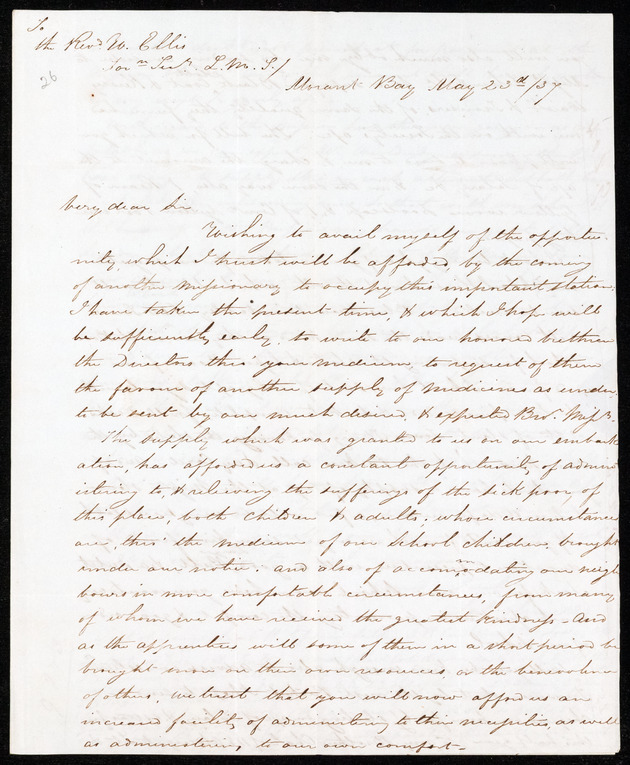 To
the Revd. W. Ellis
Forn. Secy. L.M.S./
26
Morant Bay May 23rd/37
Very dear Sir
Wishing to avail myself of the opportu-
nity, which I trust will be afforded, by the coming
of another Missionary to occupy this important station,
I have taken the present time, & which I hope will
be sufficiently early, to write to our honored brethren
the Directors thro' your medium, to request of them
the favour of another supply of medicines as under,
to be sent by our much desired, & expected Bror. Missy.
The supply which was granted to us on our embark
ation, has afforded us a constant opportunity of admin
istering to, & relieving the sufferings of the sick poor, of
this place, both children & adults, whose circumstances
are, thro' the medium of our School children, brought
under our notice: and also of accommodating our neigh
bours in more comfortable circumstances, from many
of whom we have received the greatest kindness - and
as the apprentices will some of them in a short period be
brought more on their own resources, or the benevolence
of others, we trust that you will now afford us an
increased facility of administering to their necessities, as well
as administering, to our own comfort -